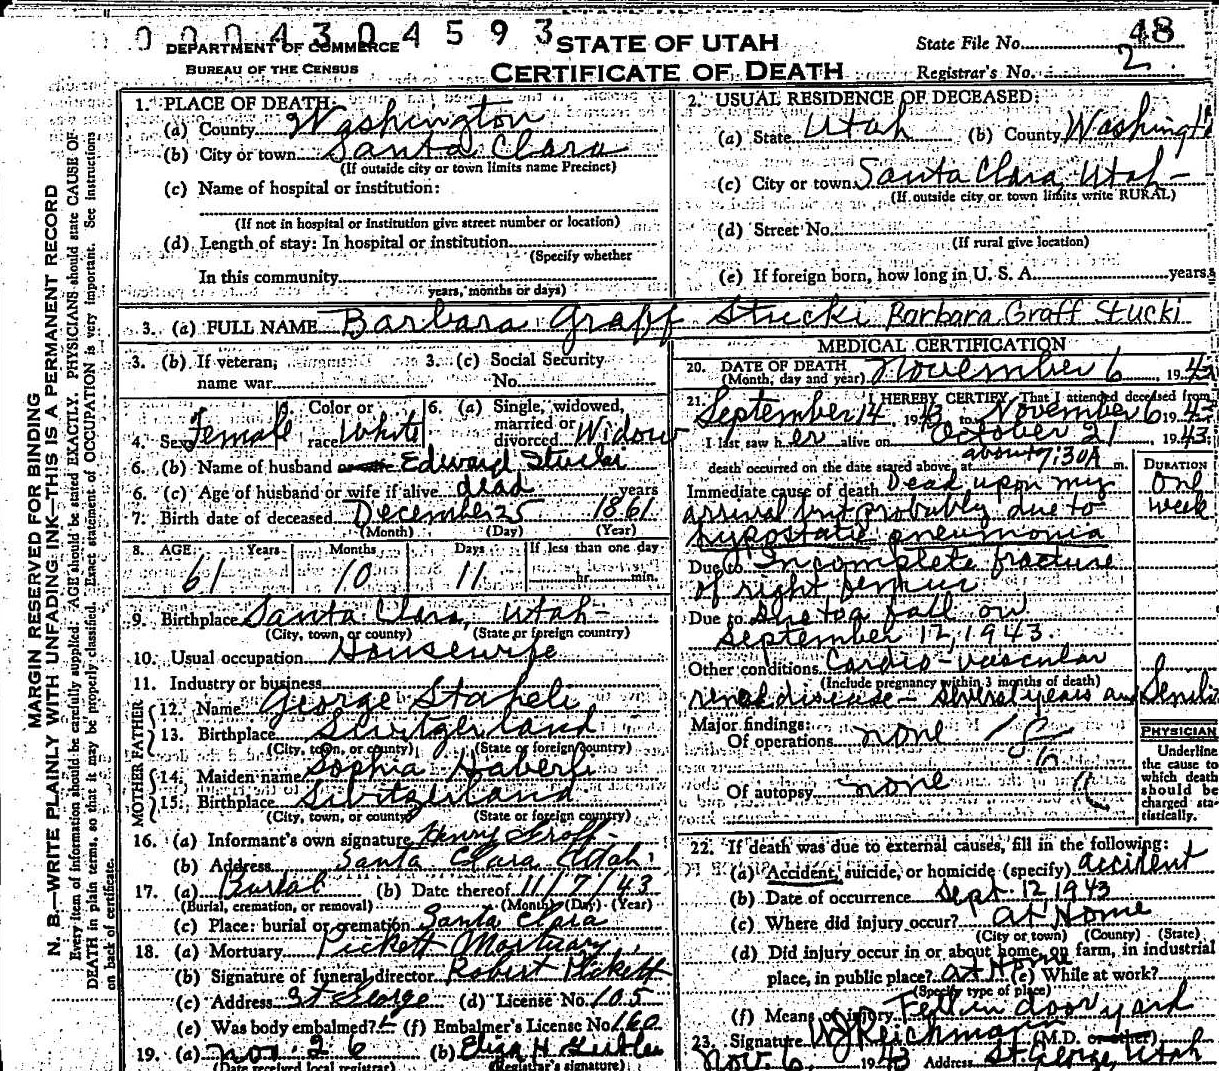 0 0 0 4 3 0 4 5 9 3
DEPARTMENT OF COMMERCE
BUREAU OF THE CENSUS
STATE OF UTAH
CERTIFICATE OF DEATH
State File No. 48
Registrar's No. 2
MARGIN RESERVED FOR BINDING
N. B.—WRITE PLAINLY WITH UNFADING INK—THIS IS A PERMANENT RECORD
Every item of information should be carefully supplied. AGE should be stated EXACTLY. PHYSICIANS should state CAUSE OF
DEATH in plain terms, so that it may be properly classified. Exact statement of OCCUPATION is very important. See instructions
on back of certificate.
1. PLACE OF DEATH:
(a) County Washington
(b) City or town Santa Clara
(If outside city or town limits name Precinct)
(c) Name of hospital or institution:
(If not in hospital or institution give street number or location)
(d) Length of stay: In hospital or institution
(Specify whether
In this community
years, months or days)
2. USUAL RESIDENCE OF DECEASED:
(a) State Utah (b) County Washingt
(c) City or town Santa Clara, Utah-
(If outside city or town limits write RURAL)
(d) Street No.
(If rural give location)
(e) If foreign born, how long in U. S. A. years
3. (a) FULL NAME Barbara Graff Stucki Barbara Graff Stucki
3. (b) If veteran,
name war
3. (c) Social Security
No.
4. Sex Female
Color or
race White
6. (a) Single, widowed,
married or
divorced Widow
6. (b) Name of husband or wife Edward Stucki
6. (c) Age of husband or wife if alive dead years
7. Birth date of deceased December 25 1861
(Month) (Day) (Year)
8. AGE Years Months Days If less than one day
61 10 11 hr. min.
9. Birthplace Santa Clara, Utah-
(City, town, or county) (State or foreign country)
10. Usual occupation Housewife
11. Industry or business
FATHER
12. Name George Staheli
13. Birthplace Switzerland
(City, town, or county) (State or foreign country)
MOTHER
14. Maiden name Sophia Haberli
15. Birthplace Switzerland
(City, town, or county) (State or foreign country)
16. (a) Informant's own signature Henry Graff-
(b) Address Santa Clara Utah
17. (a) Burial (b) Date thereof 11/7/43
(Burial, cremation, or removal) (Month) (Day) (Year)
(c) Place: burial or cremation Santa Clara
18. (a) Mortuary Pickett Mortuary
(b) Signature of funeral director Robert Pickett
(c) Address St George (d) License No. 105
(e) Was body embalmed? (f) Embalmer's License No. 160
19. (a) Nov. 26 (b) Eliza H
(Date received local registrar) (Registrar's signature)
MEDICAL CERTIFICATION
20. DATE OF DEATH
(Month, day and year) November 6, 1943
21. I HEREBY CERTIFY, That I attended deceased from
September 14, 1943 to November 6 1943
I last saw her alive on October 21, 1943.
death occurred on the date stated above, at about 7:30A m.
DURATION
Immediate cause of death Dead upon my One
arrival but probably due to week
hypostatic pneumonia
Due to Incomplete fracture
of right femur
Due to due to a fall on
September 12, 1943.
Other conditions Cardio-vascular
(Include pregnancy within 3 months of death)
renal disease - several years and Senile
Major findings:
Of operations none
Of autopsy none
PHYSICIAN
Underline
the cause to
which death
should be
charged sta-
tistically.
22. If death was due to external causes, fill in the following:
(a) Accident, suicide, or homicide (specify) accident
(b) Date of occurrence Sept. 12 1943
(c) Where did injury occur? at Home
(City or town) (County) (State)
(d) Did injury occur in or about home, on farm, in industrial
place, in public place? at Home (e) While at work?
(Specify type of place)
(f) Means of injury Fell in door yard
23. Signature W J Reichmann (M.D. or other)
Nov. 6, 1943 Address St. George, Utah